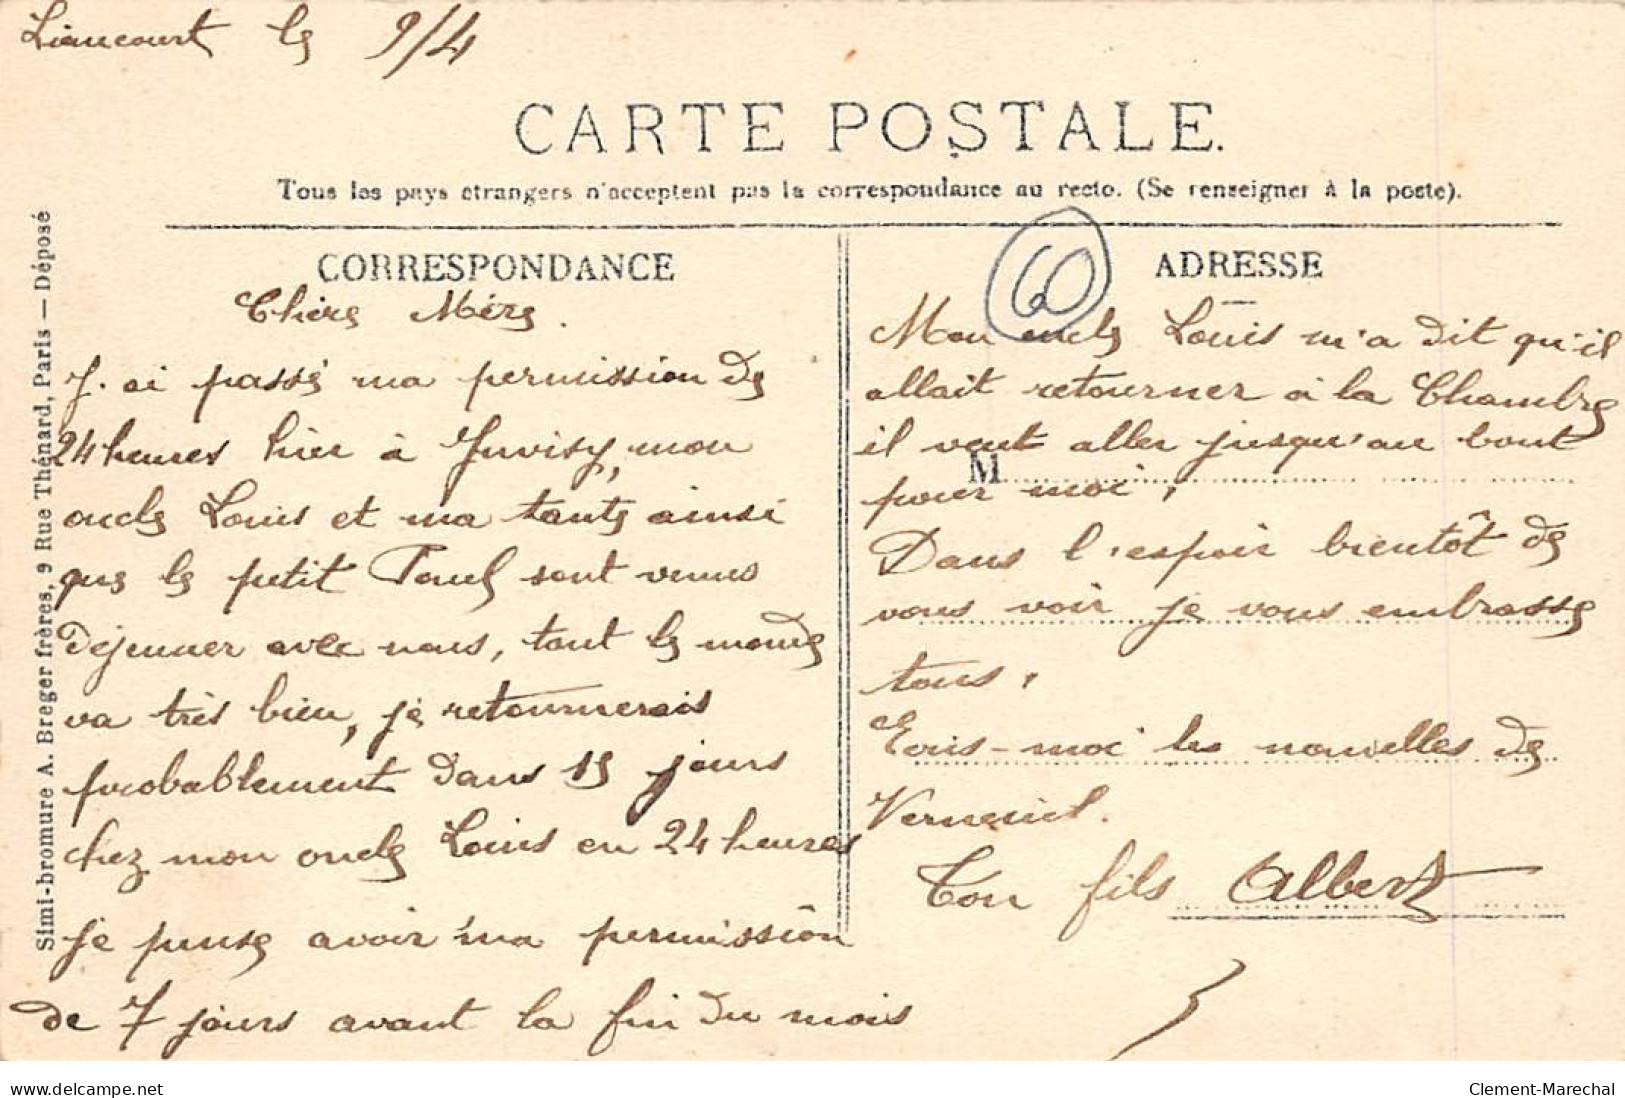 Liancourt le 9/4
CARTE POSTALE.
Tous les pays étrangers n'acceptent pas la correspondance au recto. (Se renseigner à la poste).
Simi-bromure A. Breger frères, 9 Rue Thénard, Paris — Déposé
CORRESPONDANCE
Chère Mère.
J'ai passé ma permission de
24 heures hier à Juvisy, mon
oncle Louis et ma tante ainsi
que le petit Paul sont venus
déjeuner avec nous, tout le monde
va très bien, je retournerais
probablement dans 15 jours
chez mon oncle Louis en 24 heures
je pense avoir ma permission
de 7 jours avant la fin du mois
60
ADRESSE
Mon oncle Louis m'a dit qu'il
allait retourner à la Chambre
il veut aller jusqu'au bout
M
pour moi,
Dans l'espoir bientôt de
vous voir je vous embrasse
tous,
Ecris-moi les nouvelles de
Verneuil.
Ton fils Albert
www.delcampe.net
Clement-Marechal